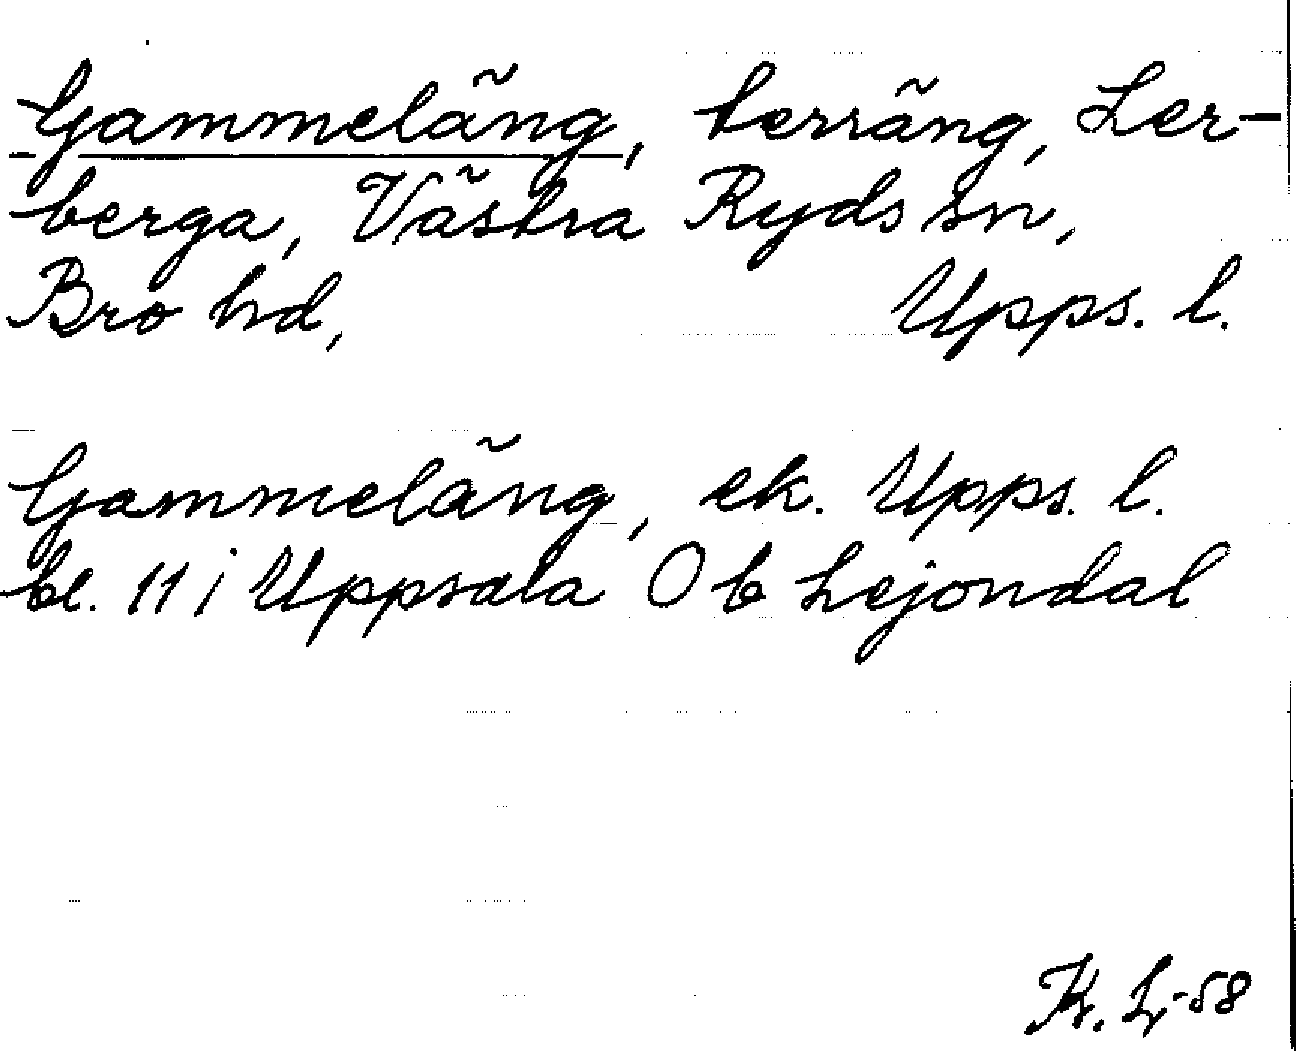 Gammeläng, terräng, Ler-
berga, Västra Ryds sn,
Bro hd, Upps. l.
Gammeläng, ek. Upps. l.
bl. 11 i Uppsala Ob Lejondal
K. L. -58